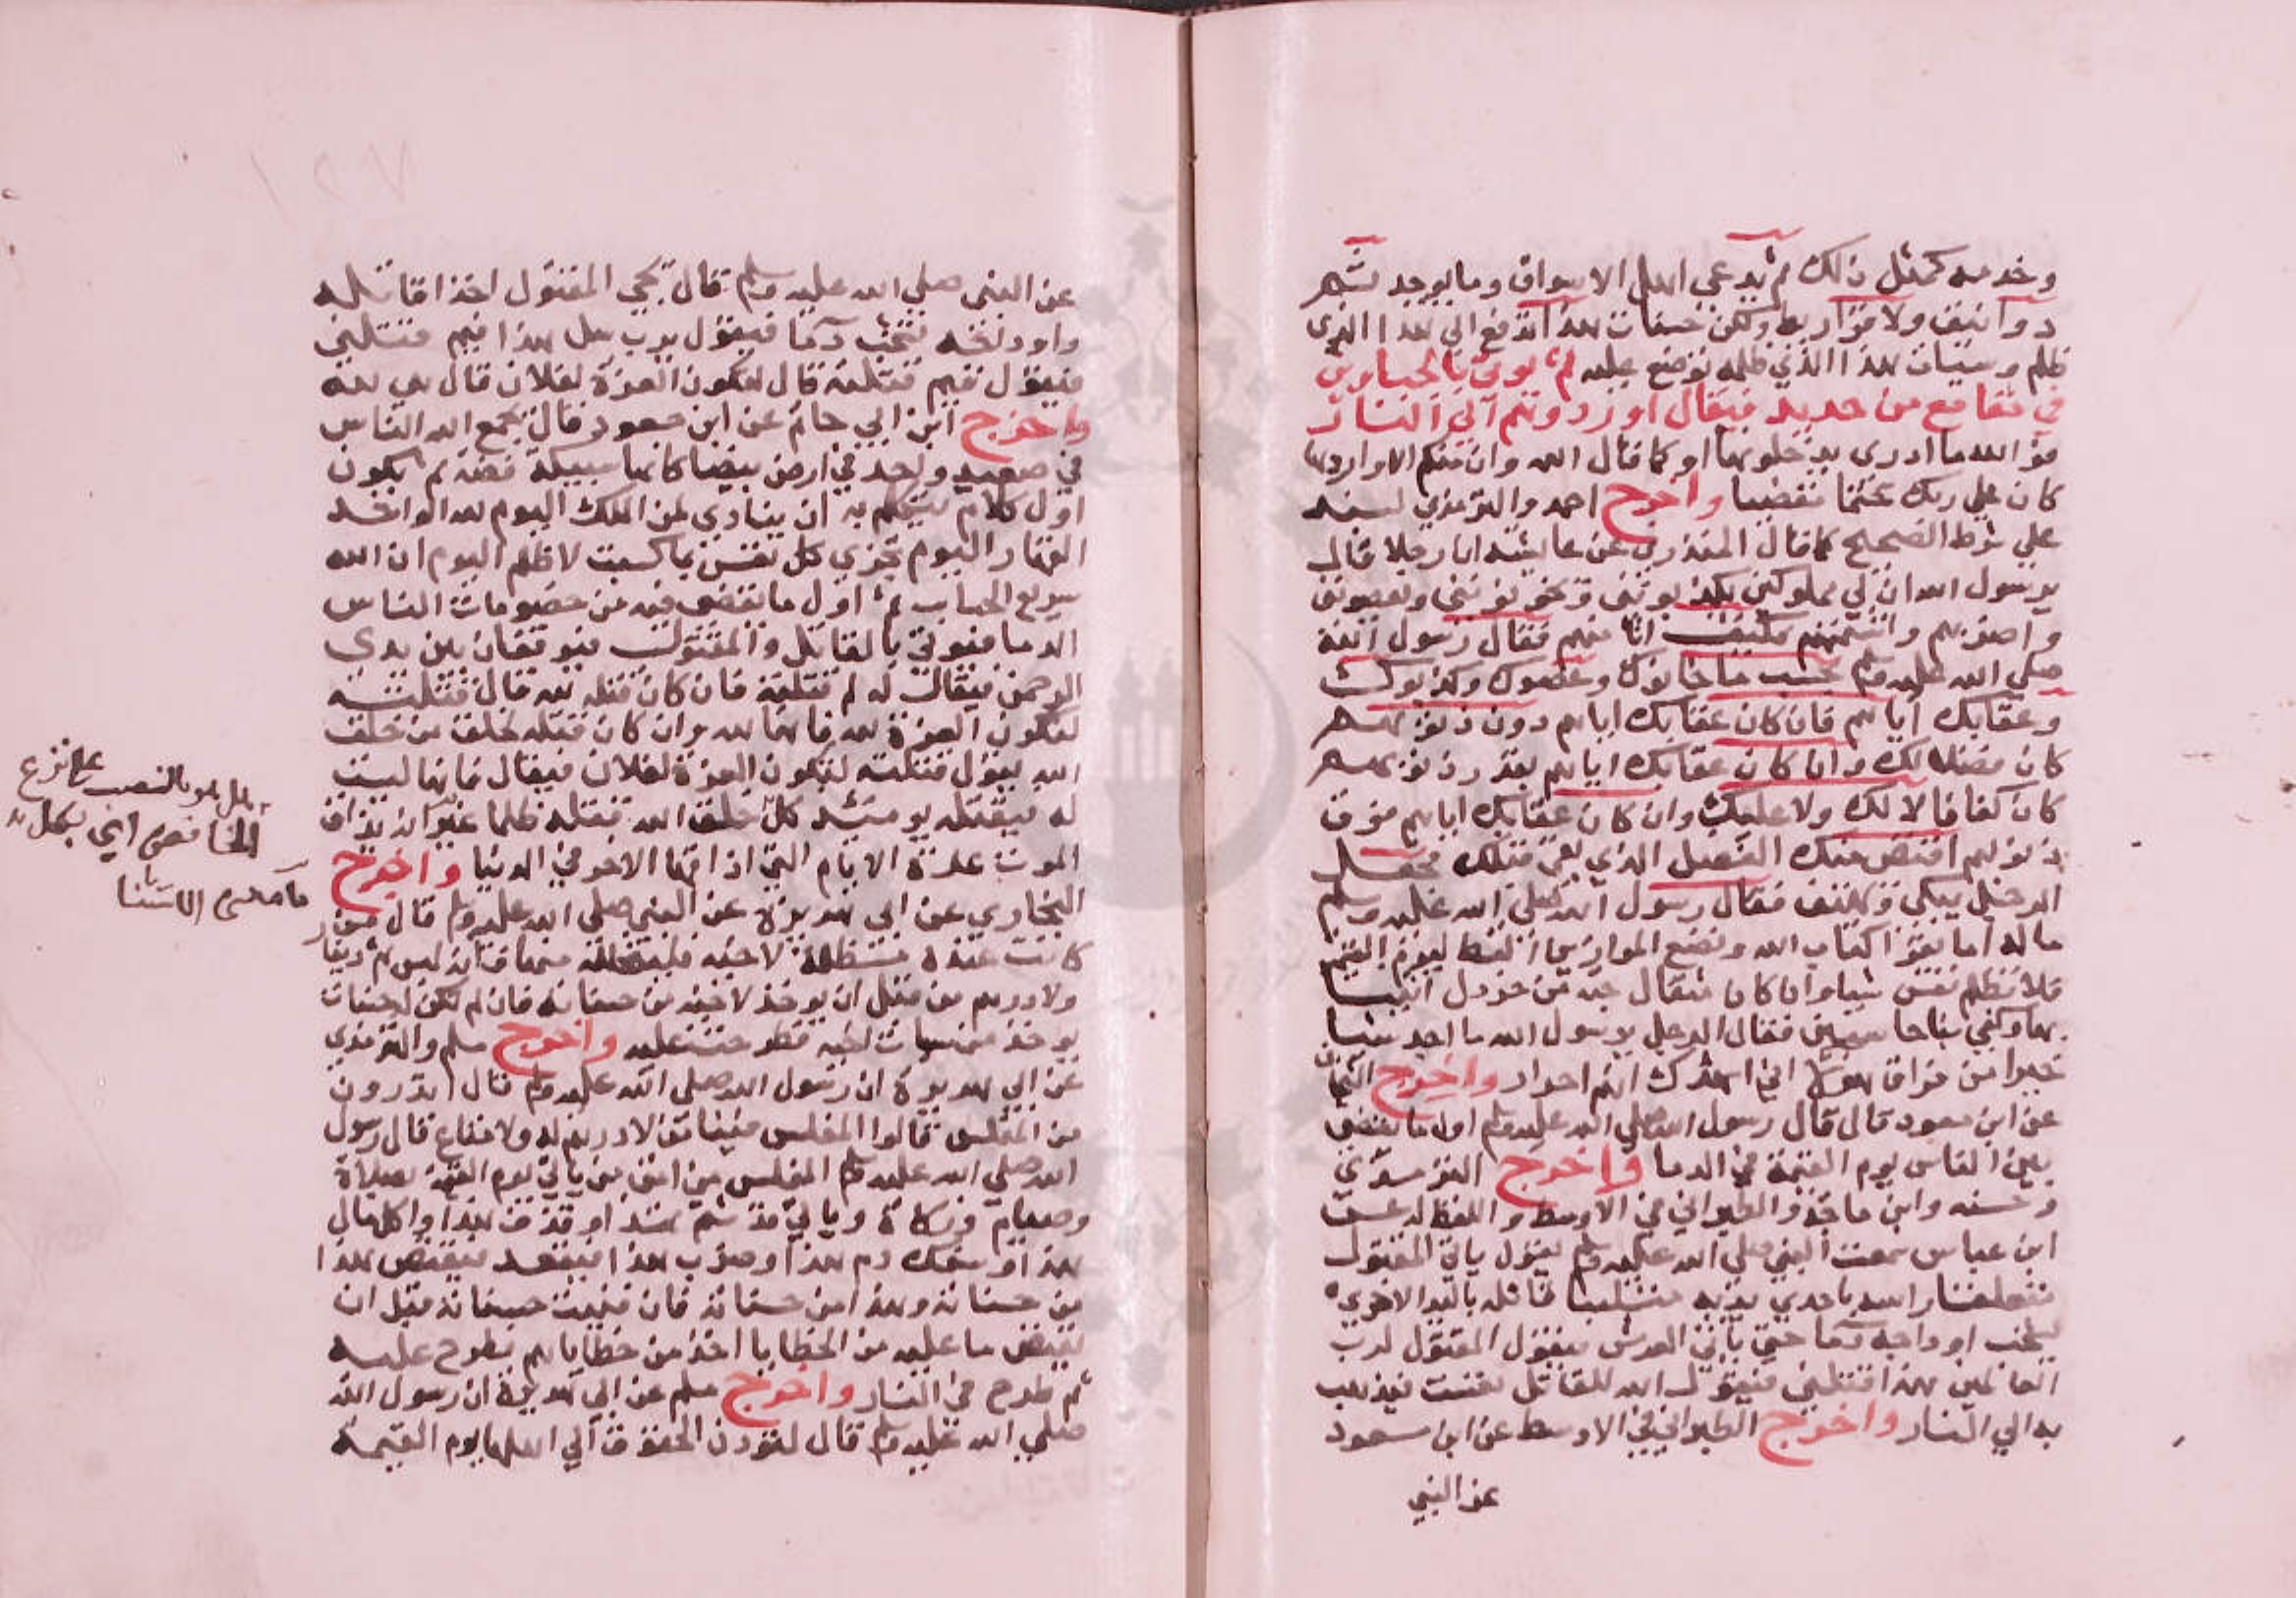 وخدمه كمثل ذلك ثم يدعي اهل الاسواق وما يوجد ثم
دوانيق ولا قراريط ولكن حسنات هذا تدفع الي هذا الذي
ظلم وسيات هذا الذي ظلمه توضع عليه ثم يوتي بالجبارين
في مقامع من حديد فيقال اوردوهم الي النار
فو الله ما ادري يدخلونها او كما قال الله وان منكم الا واردها
كان علي ربك حتما مقضيا واخرج احمد والترمذي بسند
علي شرط الصحيح كما قال المنذري عن عايشه ان رجلا قال
يرسول الله ان لي مملوكين يكذبونني ويخونونني ويعصونني
واضربهم واشتمهم فكيف انا منهم فقال رسول الله
صلي الله عليه وسلم يحسب ما خانوك وعصوك وكذبوك
وعقابك اياهم فان كان عقابك اياهم دون ذنوبهم
كان فضلا لك وان كان عقابك اياهم بقدر ذنوبهم
كان كفافا لا لك ولا عليك وان كان عقابك اياهم فوق
ذنوبهم اقتص منك الفضل الذي بقي قبلك فجعل
الرجل يبكي ويهتف فقال رسول الله صلي الله عليه وسلم
ماله اما تقرا كتاب الله ونضع الموازين القسط ليوم القيمة
فلا تظلم نفس شيا وان كان مثقال حبة من خردل اتينا
بها وكفي بنا حاسبين فقال الرجل يرسول الله ما اجد شيا
خيرا من فراق هولا اني اشهدك انهم احرار واخرج الشيخان
عن ابن مسعود قال قال رسول الله صلي الله عليه وسلم اول ما يقضي
بين الناس يوم القيمة في الدما واخرج الترمذي
وحسنه وابن ماجة والطبراني في الاوسط واللفظ له عن
ابن عباس سمعت النبي صلي الله عليه وسلم يقول ياتي المقتول
متعلقا راسه باحدي يديه متلببا قاتله باليد الاخري
تشخب اوداجه دما حتي ياتي العرش فيقول المقتول لرب
العالمين هذا قتلني فيقول الله للقاتل تعست فيذهب
به الي النار واخرج الطبراني في الاوسط عن ابن مسعود
عن النبي
عن النبي صلي الله عليه وسلم قال يجي المقتول اخذا قاتله
واوداجه تشخب دما فيقول يرب سل هذا فيم قتلني
فيقول فيم قتلته قال لتكون العزة لفلان قال هي لله
واخرج ابن ابي حاتم عن ابن مسعود قال يجمع الله الناس
في صعيد واحد في ارض بيضا كانها سبيكة فضة ثم يكون
اول كلام يتكلم به ان ينادي لمن الملك اليوم لله الواحد
القهار اليوم تجزي كل نفس بما كسبت لا ظلم اليوم ان الله
سريع الحساب ثم اول ما يقضي فيه من خصومات الناس
الدما فيوتي بالقاتل والمقتول فيوقفان بين يدي
الرحمن فيقال له لم قتلته فان كان قتله لله قال قتلته
لتكون العزة لله فانها لله وان كان قتله لخلق من خلق
الله يقول قتلته لتكون العزة لفلان فيقال فانها ليست
له فيقتله يومئذ كل خلق الله قتله ظلما غير انه يذاق
الموت عدة الايام التي اذاقها الاخر في الدنيا واخرج
البخاري عن ابي هريرة عن النبي صلي الله عليه وسلم قال من
كانت عنده مظلمة لاخيه فليتحلله منها فانه ليس ثم دينار
ولا درهم من قبل ان يوخذ لاخيه من حسناته فان لم تكن له حسنات
يوخذ من سيات اخيه فطرحت عليه واخرج مسلم والترمذي
عن ابي هريرة ان رسول الله صلي الله عليه وسلم قال اتدرون
من المفلس قالوا المفلس فينا من لا درهم له ولا متاع قال رسول
الله صلي الله عليه وسلم المفلس من امتي من ياتي يوم القيمة بصلاة
وصيام وزكاة وياتي قد شتم هذا وقذف هذا واكل مال
هذا وسفك دم هذا وضرب هذا فيقعد فيقتص هذا
من حسناته وهذا من حسناته فان فنيت حسناته قبل ان
يقتص ما عليه من الخطايا اخذ من خطاياهم فطرح عليه
ثم طرح في النار واخرج مسلم عن ابي هريرة ان رسول الله
صلي الله عليه وسلم قال لتودن الحقوق الي اهلها يوم القيمة
هو بالنصب علي نزع
الخافض اي